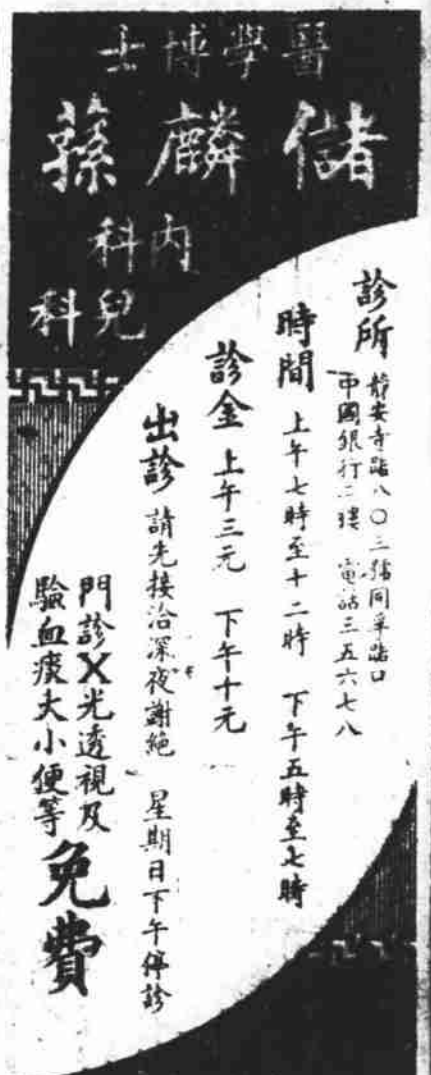 醫學博士
儲麟蓀
內科
兒科
診所 靜安寺路八〇三號同孚路口
中國銀行二樓 電話三五六七八
時間 上午七時至十二時 下午五時至七時
診金 上午三元 下午十元
出診 請先接洽深夜謝絕 星期日下午停診
門診X光透視及
驗血痰大小便等
免費